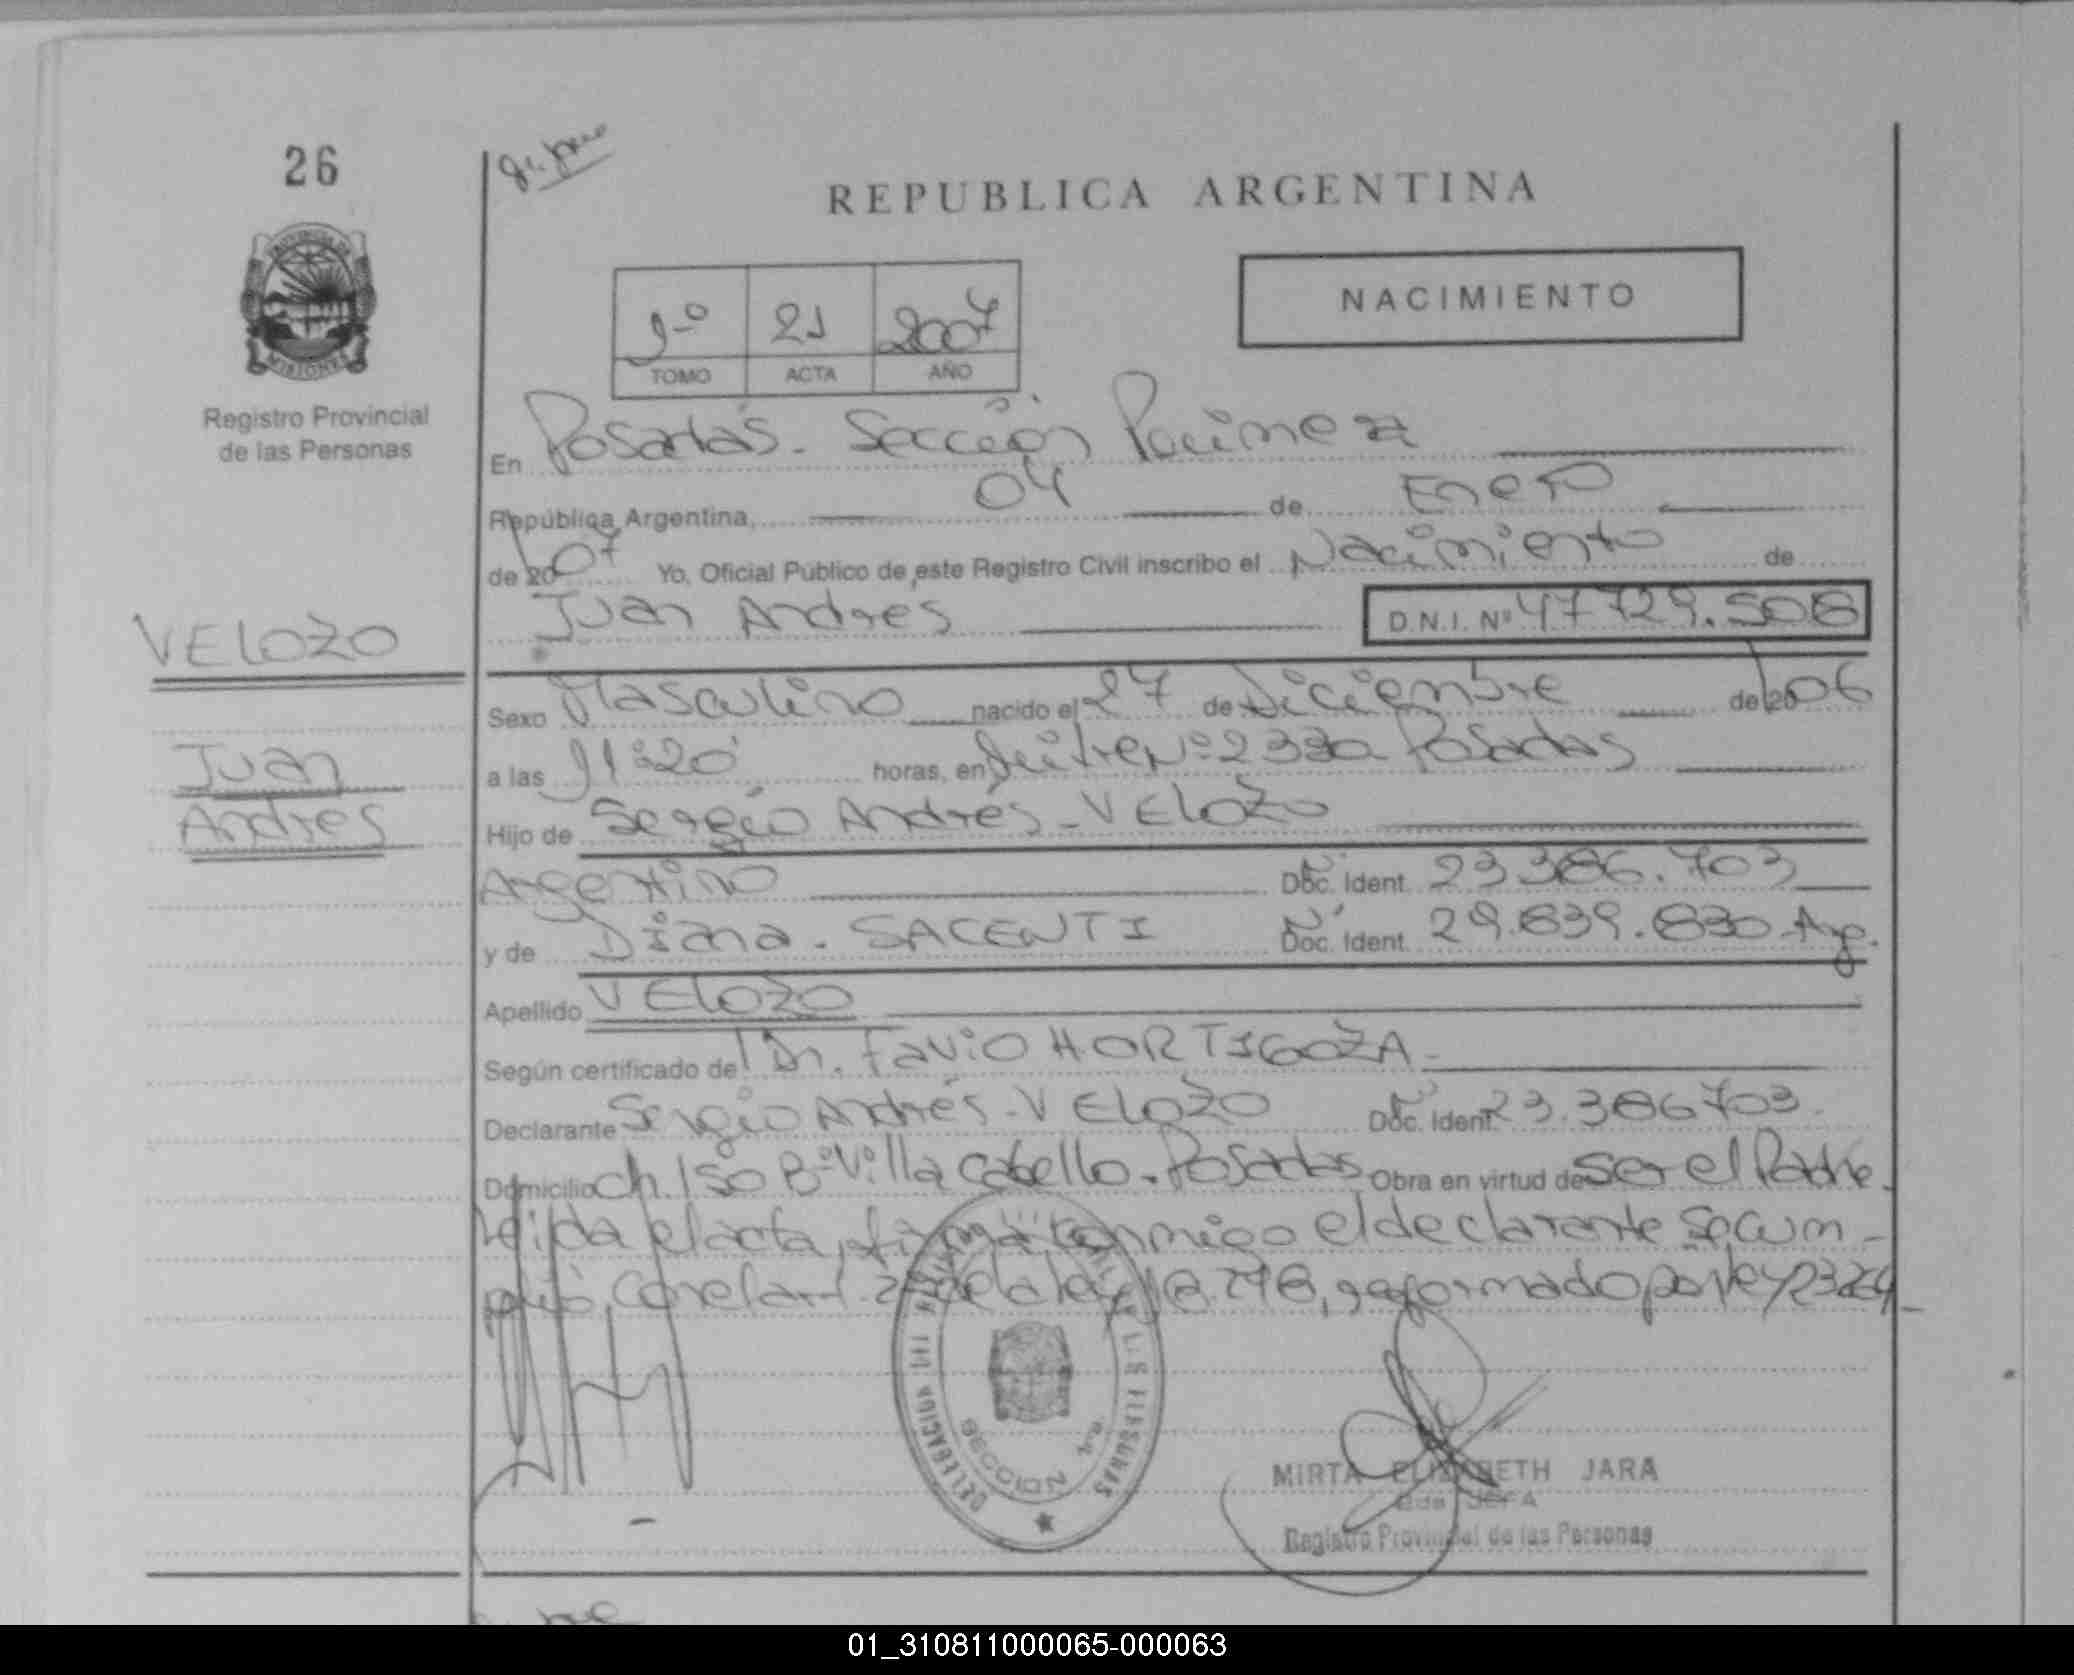 26
REPUBLICA ARGENTINA
PROVINCIA DE
MISIONES
NACIMIENTO
1º 21 2007
TOMO ACTA AÑO
Registro Provincial
de las Personas
En Posadas. Sección Primera
República Argentina, 04 de Enero
de 2007 Yo, Oficial Público de este Registro Civil inscribo el Nacimiento de
Juan Andres D.N.I. Nº 47729.508
VELOZO
Sexo Masculino nacido el 27 de Diciembre de 2006
Juan
a las 11:20 horas, en Nº 2330 Posadas
Andres
Hijo de Sergio Andrés - VELOZO
Argentino Doc. Ident. 23.386.703
y de Diana. SACENTI Doc. Ident. 29.839.830 Arg.
Apellido VELOZO
Según certificado de Dr. Favio HORTIGOZA
Declarante Sergio Andrés - VELOZO Doc. Ident. 23.386703.
Domicilio Ch. 150 Bº Villa Cabello. Posadas Obra en virtud de ser el Padre.
leida el acta, firma conmigo el declarante se cum-
plió, con el art. de la ley reformado por ley
DELEGACION DEL
SECCION 1ra
MIRTA ELIZABETH JARA
JEFA
Registro Provincial de las Personas
01_310811000065-000063